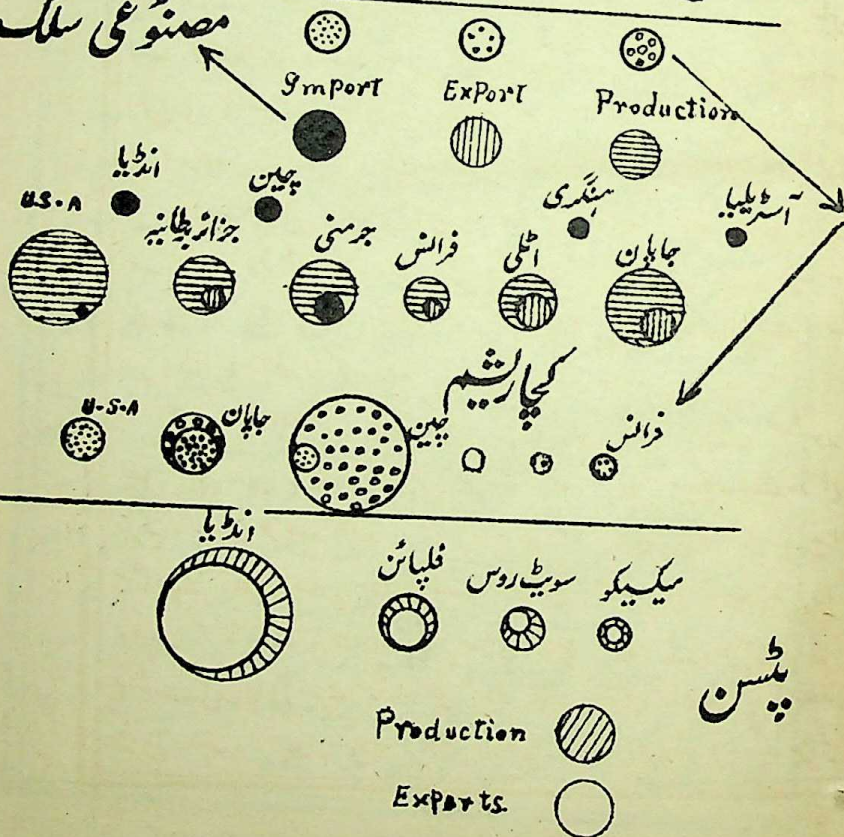 مصنوعی سلک
Import Export Production
انڈیا چین ہنگری آسٹریلیا
U.S.A جزائر برطانیہ جرمنی فرانس اٹلی جاپان
کچا ریشم
U.S.A جاپان چین فرانس
انڈیا فلپائن سویٹ روس میکسیکو
پٹسن
Production
Exports.